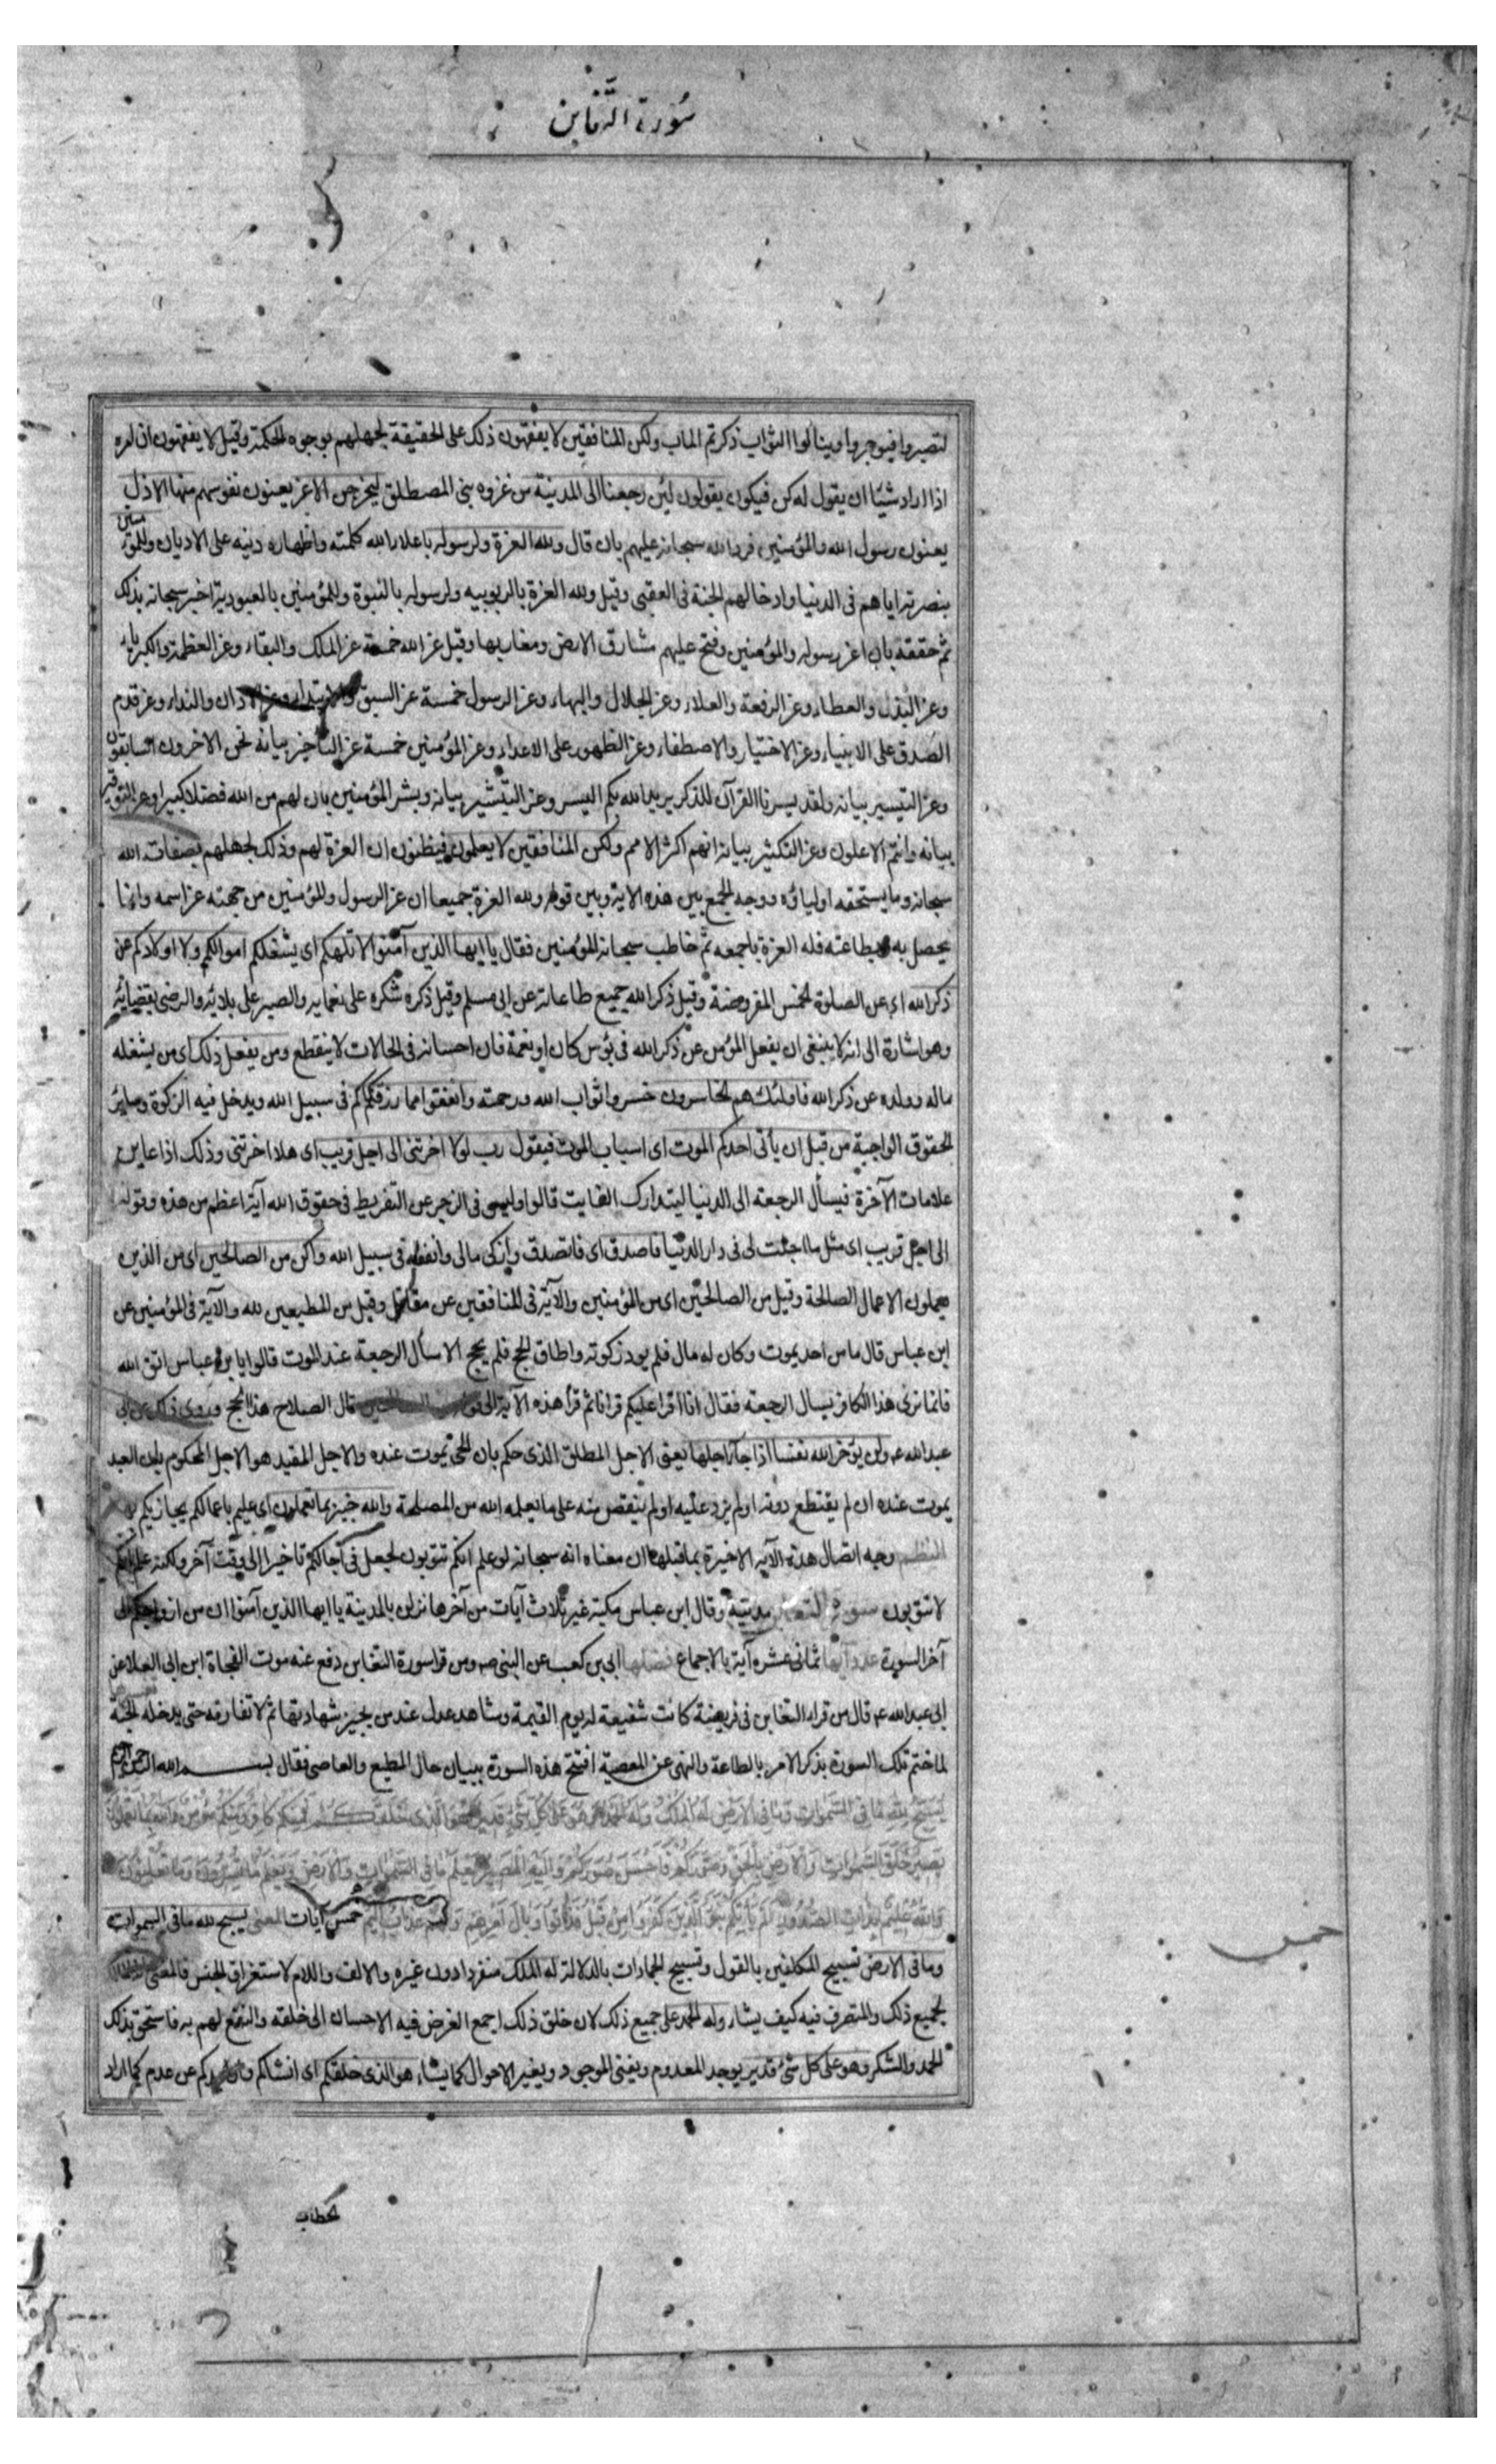 سورة التغابن
لتصبروا فيوجروا وينالوا الثواب ذكرتم الماب ولكن المنافقين لا يفقهون ذلك على الحقيقة لجهلهم بوجوه الحكمة وقيل لا يفقهون ان امره
اذا اراد شيئا ان يقول له كن فيكون يقولون لئن رجعنا الى المدينة من غزوه بنى المصطلق ليخرجن الاعز يعنون نفوسهم منها الاذل
يعنون رسول الله والمؤمنين فرد الله سبحانه عليهم بان قال ولله العزة ولرسوله باعلاء الله كلمته واظهاره دينه على الاديان وللمؤمنين
بنصرته اياهم فى الدنيا وادخالهم الجنة فى العقبى وقيل ولله العزة بالربوبيه ولرسوله بالنبوة وللمؤمنين بالعبودية اخبر سبحانه بذلك
ثم حققه بان اعز رسوله والمؤمنين وفتح عليهم مشارق الارض ومغاربها وقيل عز الله خمسة عز الملك والبقاء وعز العظمة والكبرياء
وعز البذل والعطاء وعز الرفعة والعلاء وعز الجلال والبهاء وعز الرسول خمسة عز السبق والابتداء وعز الاذان والنداء وعز قدم
الصدق على الانبياء وعز الاختيار والاصطفاء وعز الظهور على الاعداء وعز المؤمنين خمسة عز التاخير بيانه نحن الاخرون السابقون
وعز التيسير بيانه ولقد يسرنا القرآن للذكر يريد الله بكم اليسر وعز التبشير بيانه وبشر المؤمنين بان لهم من الله فضلا كبيرا وعز التوقير
بيانه وانتم الاعلون وعز التكثير بيانه انهم اكثر الامم ولكن المنافقين لا يعلمون فيظنون ان العزة لهم وذلك لجهلهم بصفات الله
سبحانه وما يستحقه اولياؤه ووجه الجمع بين هذه الاية وبين قوله ولله العزة جميعا ان عز الرسول وللمؤمنين من جهته عز اسمه وانما
يحصل به وبطاعته فله العزة باجمعه ثم خاطب سبحانه المؤمنين فقال يا ايها الذين آمنوا لا تلهكم اى يشغلكم اموالكم ولا اولادكم عن
ذكر الله اى عن الصلوة الخمس المفروضة وقيل ذكر الله جميع طاعاته عن ابى مسلم وقيل ذكره شكره على نعمايه والصبر على بلائه والرضى بقضائه
وهو اشارة الى انه لا ينبغى ان يفعل المؤمن عن ذكر الله فى بؤس كان او نعمة فان احسانه فى الحالات لا ينقطع ومن يفعل ذلك اى من يشغله
ماله وولده عن ذكر الله فاولئك هم الخاسرون خسروا ثواب الله ورحمته وانفقوا مما رزقناكم فى سبيل الله ويدخل فيه الزكوة وسائر
الحقوق الواجبة من قبل ان يأتى احدكم الموت اى اسباب الموت فيقول رب لولا اخرتنى الى اجل قريب اى هلا اخرتنى وذلك اذا عاين
علامات الآخرة فيسأل الرجعه الى الدنيا ليتدارك الفايت قالوا وليس فى الزجر عن التفريط فى حقوق الله آية اعظم من هذه وقوله
الى اجل قريب اى مثل ما اجلت لى فى دار الدنيا فاصدق اى فاتصدق وازكى مالى وانفقه فى سبيل الله واكن من الصالحين اى من الذين
يعملون الاعمال الصالحة وقيل من الصالحين اى من المؤمنين والآية فى المنافقين عن مقاتل وقيل من المطيعين لله والآية فى المؤمنين عن
ابن عباس قال ما من احد يموت وكان له مال فلم يود زكوته واطاق الحج فلم يحج الا سأل الرجعة عند الموت قالوا يا بن عباس اتق الله
فانما نرى هذا الكافر يسال الرجعة فقال انا اقرا عليكم قرانا ثم قرأ هذه الآية الى قوله من الصالحين قال الصلاح هذا الحج وروى ذلك عن ابى
عبد الله ع ولن يؤخر الله نفسا اذا جآء اجلها يعنى الاجل المطلق الذى حكم بان الحى يموت عنده والاجل المقيد هو الاجل المحكوم بان العبد
يموت عنده ان لم يقتطع دونه او لم يزد عليه او لم ينقص منه على ما يعلمه الله من المصلحة والله خبير بما تعملون اى عليم باعمالكم يجازيكم بها
النظم وجه اتصال هذه الآية الاخيرة بما قبلها ان معناه انه سبحانه لو علم انكم تتوبون لجعل فى آجالكم تاخيرا الى وقت آخر ولكنه علم انكم
لا تتوبون سورة التغابن مدنية وقال ابن عباس مكية غير ثلاث آيات من آخرها نزلن بالمدينة يا ايها الذين آمنوا ان من ازواجكم الى
آخر السورة عدد آيها ثمانى عشره آية بالاجماع فضلها ابى بن كعب عن النبى ص ومن قرا سورة التغابن دفع عنه موت الفجاة ابن ابى العلا عن
ابى عبد الله ع قال من قراء التغابن فى فريضة كانت شفيعة له يوم القيمة وشاهد عدل عند من يجيز شهادتها ثم لا تفارقه حتى يدخله الجنة
لما ختم تلك السورة بذكر الامر بالطاعة والنهى عن المعصية افتتح هذه السورة ببيان حال المطيع والعاصى فقال بسم الله الرحمن الرحيم
يسبح لله ما فى السموات وما فى الارض له الملك وله الحمد وهو على كل شئ قدير هو الذى خلقكم فمنكم كافر ومنكم مؤمن والله بما تعملون
بصير خلق السموات والارض بالحق وصوركم فاحسن صوركم واليه المصير يعلم ما فى السموات والارض ويعلم ما تسرون وما تعلنون
والله عليم بذات الصدور الم ياتكم نبؤا الذين كفروا من قبل فذاقوا وبال امرهم ولهم عذاب اليم خمس آيات المعنى يسبح لله ما فى السموات
خمس
وما فى الارض تسبيح المكلفين بالقول وتسبيح الجمادات بالدلالة له الملك منفردا دون غيره والالف واللام لاستغراق الجنس فالمعنى
لجميع ذلك والمتصرف فيه كيف يشاء وله الحمد على جميع ذلك لان خلق ذلك اجمع الغرض فيه الاحسان الى خلقه والنفع لهم به فاستحق بذلك
الحمد والشكر وهو على كل شئ قدير يوجد المعدوم ويفنى الموجود ويغير الاحوال كما يشاء هو الذى خلقكم اى انشاكم واوجدكم عن عدم كما اراد